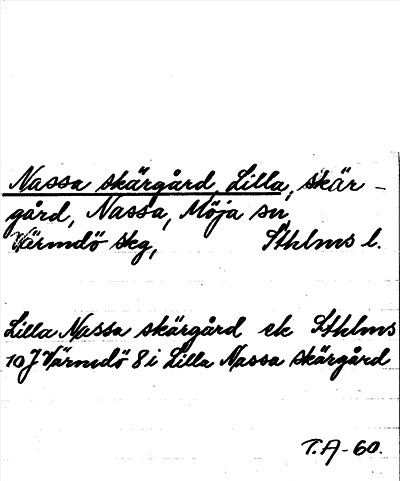 Nassa skärgård, Lilla, skär-
gård, Nassa, Möja sn,
Värmdö skg, Sthlms l.
Lilla Nassa skärgård ek Sthlms
10J Värmdö 8 i Lilla Nassa skärgård
T.A-60.